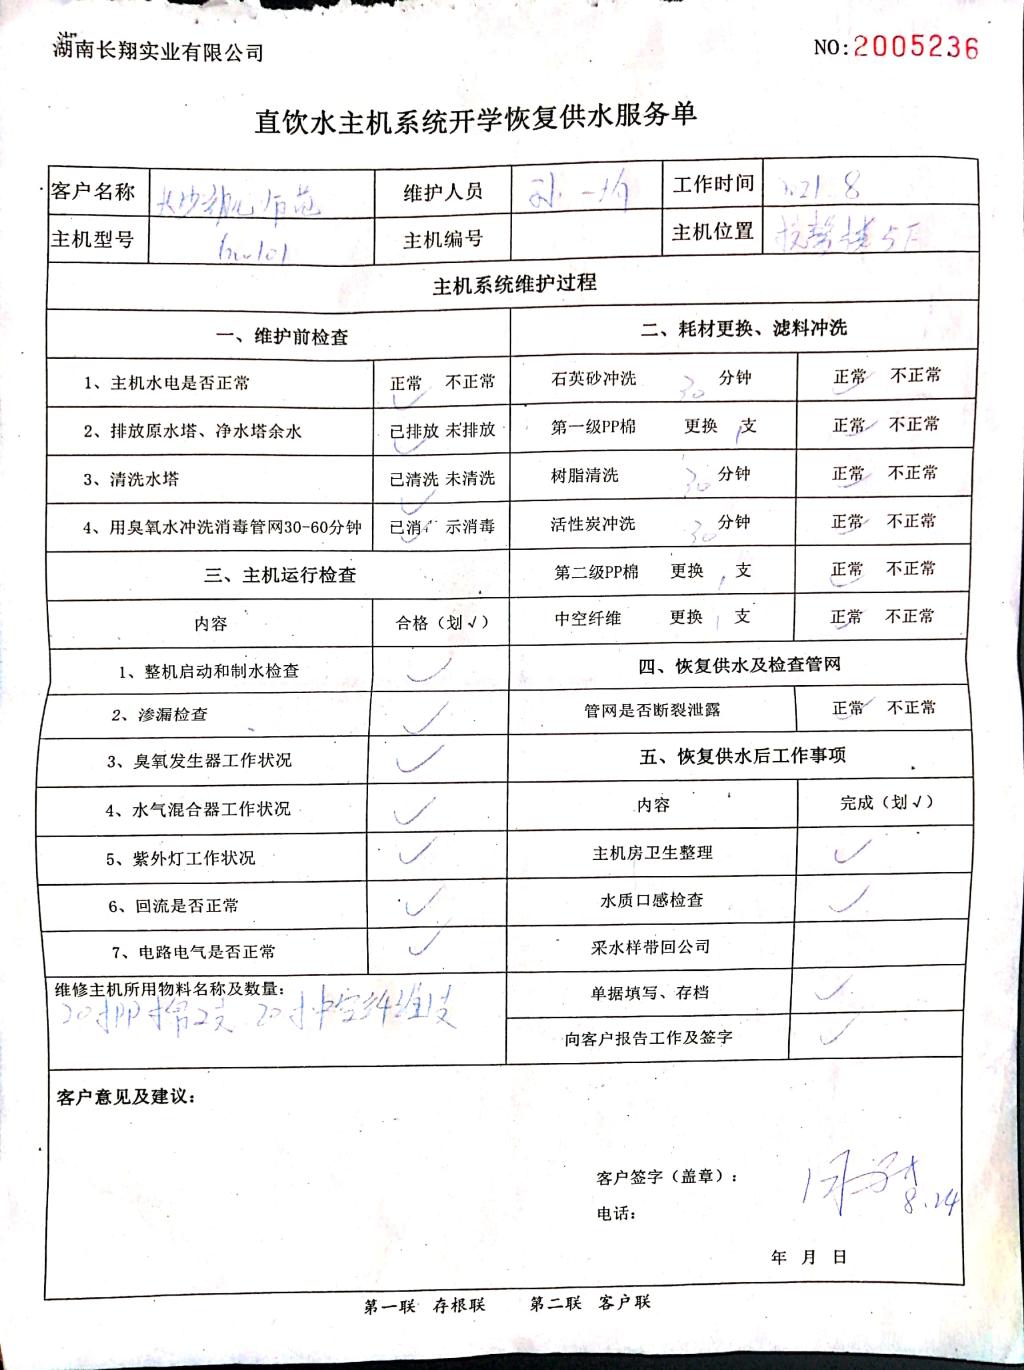 湖南长翔实业有限公司
NO:2005236
直饮水主机系统开学恢复供水服务单
客户名称 维护人员 工作时间
主机型号 主机编号 主机位置
主机系统维护过程
一、维护前检查
1、主机水电是否正常 正常 不正常
2、排放原水塔、净水塔余水 已排放 未排放
3、清洗水塔 已清洗 未清洗
4、用臭氧水冲洗消毒管网30-60分钟 已消 示消毒
二、耗材更换、滤料冲洗
石英砂冲洗 30 分钟 正常 不正常
第一级PP棉 更换 1 支 正常 不正常
树脂清洗 30 分钟 正常 不正常
活性炭冲洗 30 分钟 正常 不正常
第二级PP棉 更换 1 支 正常 不正常
中空纤维 更换 1 支 正常 不正常
三、主机运行检查
内容 合格（划√）
1、整机启动和制水检查 ✓
2、渗漏检查 ✓
3、臭氧发生器工作状况 ✓
4、水气混合器工作状况 ✓
5、紫外灯工作状况 ✓
6、回流是否正常 ✓
7、电路电气是否正常 ✓
四、恢复供水及检查管网
管网是否断裂泄露 正常 不正常
五、恢复供水后工作事项
内容 完成（划√）
主机房卫生整理 ✓
水质口感检查 ✓
采水样带回公司
单据填写、存档 ✓
向客户报告工作及签字 ✓
维修主机所用物料名称及数量：
20寸PP棉2支 20寸中空纤维1支
客户意见及建议：
客户签字（盖章）：
8.24
电话：
年 月 日
第一联 存根联 第二联 客户联